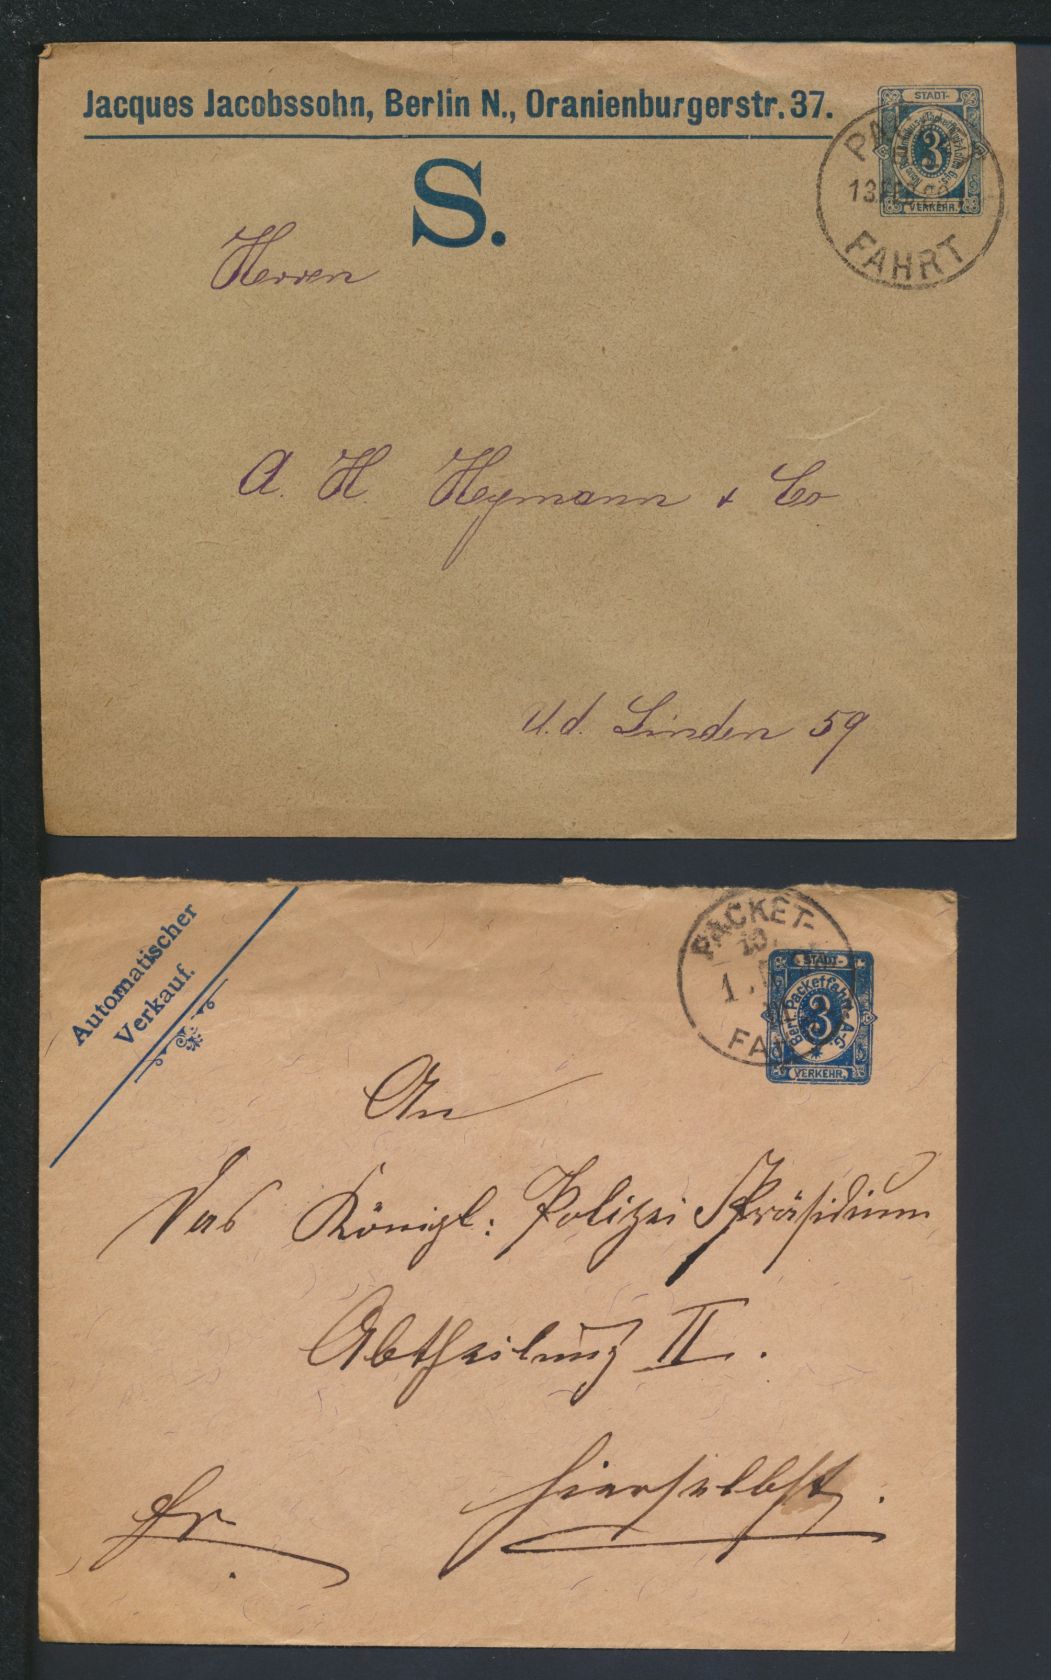 Jacques Jacobssohn, Berlin N., Oranienburgerstr. 37.
STADT-
3
VERKEHR.
FAHRT
S.
Herren
A. H. Heymann & Co
U. d. Linden 59
Automatischer
Verkauf.
PACKET-
10
STADT-
Berl. Packetfahrt-A-G.
3
VERKEHR.
An
das Königl: Polizei Präsidium
Abtheilung II.
fr.
hierselbst.